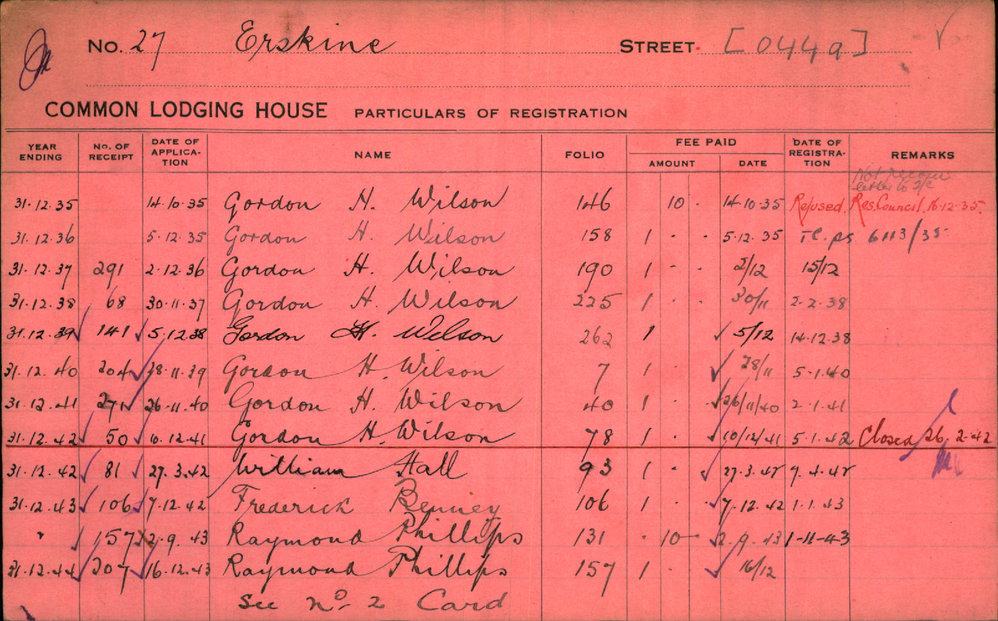 No. 27 Erskine STREET [0449]
COMMON LODGING HOUSE PARTICULARS OF REGISTRATION
YEAR ENDING No. OF RECEIPT DATE OF APPLICA-TION NAME FOLIO FEE PAID AMOUNT DATE DATE OF REGISTRA-TION REMARKS
letter to
31.12.35 14.10.35 Gordon H. Wilson 146 10 - 14.10.35 Refused. Res. Council. 16.12.35.
31.12.36 5.12.35 Gordon H. Wilson 158 1 - - 5.12.35 6113/35
31.12.37 291 2.12.36 Gordon H. Wilson 190 1 - - 2/12 15/12
31.12.38 68 30.11.37 Gordon H. Wilson 225 1 - - 30/11 2.2.38
31.12.39 141 5.12.38 Gordon H. Wilson 262 1 5/12 14.12.38
31.12.40 204 28.11.39 Gordon H. Wilson 7 1 - - 28/11 5.1.40
31.12.41 271 26.11.40 Gordon H. Wilson 40 1 - - 26/11/40 2.1.41
31.12.42 50 10.12.41 Gordon H. Wilson 78 1 - - 10/12/41 5.1.42 Closed 26.2.42
31.12.42 81 27.3.42 William Hall 93 1 - 27.3.42 9.4.42
31.12.43 106 7.12.42 Frederick Benney 106 1 - - 7.12.42 1.1.43
" 157 2.9.43 Raymond Phillips 131 - 10 - 2.9.43 1-11-43
31.12.44 207 16.12.43 Raymond Phillips 157 1 - 16/12
See No. 2 Card